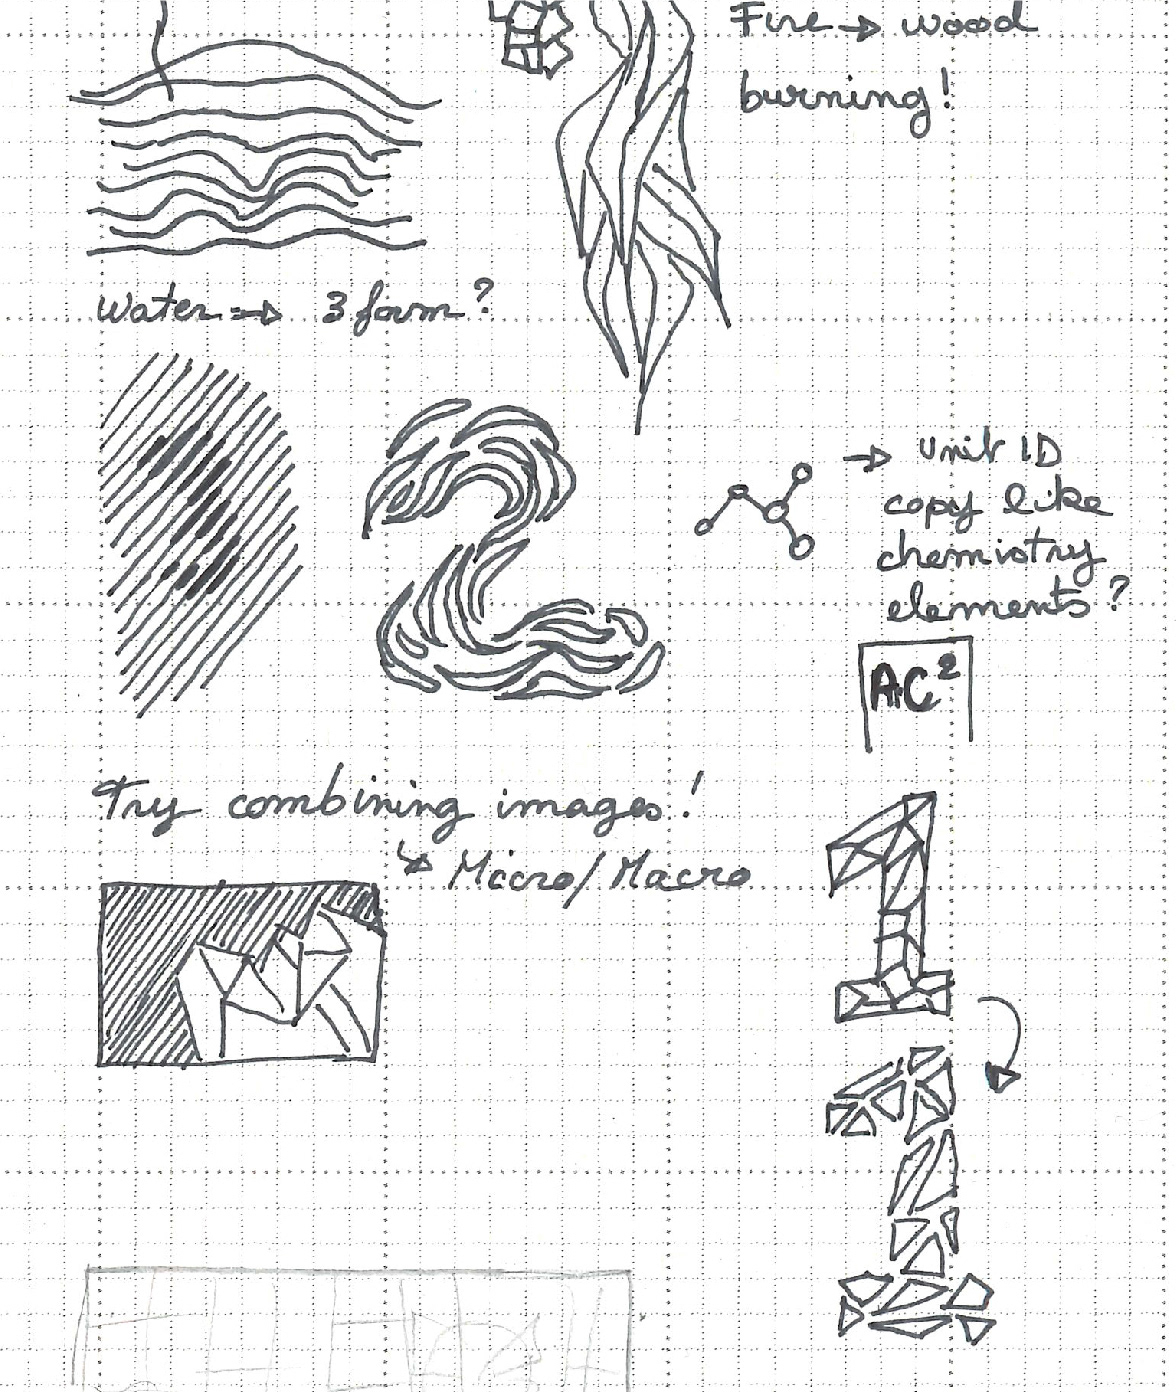 Fire → wood
burning!
Water → 3 form?
→ Unit ID
copy like
chemistry
elements?
AC²
Try combining images!
↳ Micro/Macro
2
1
1